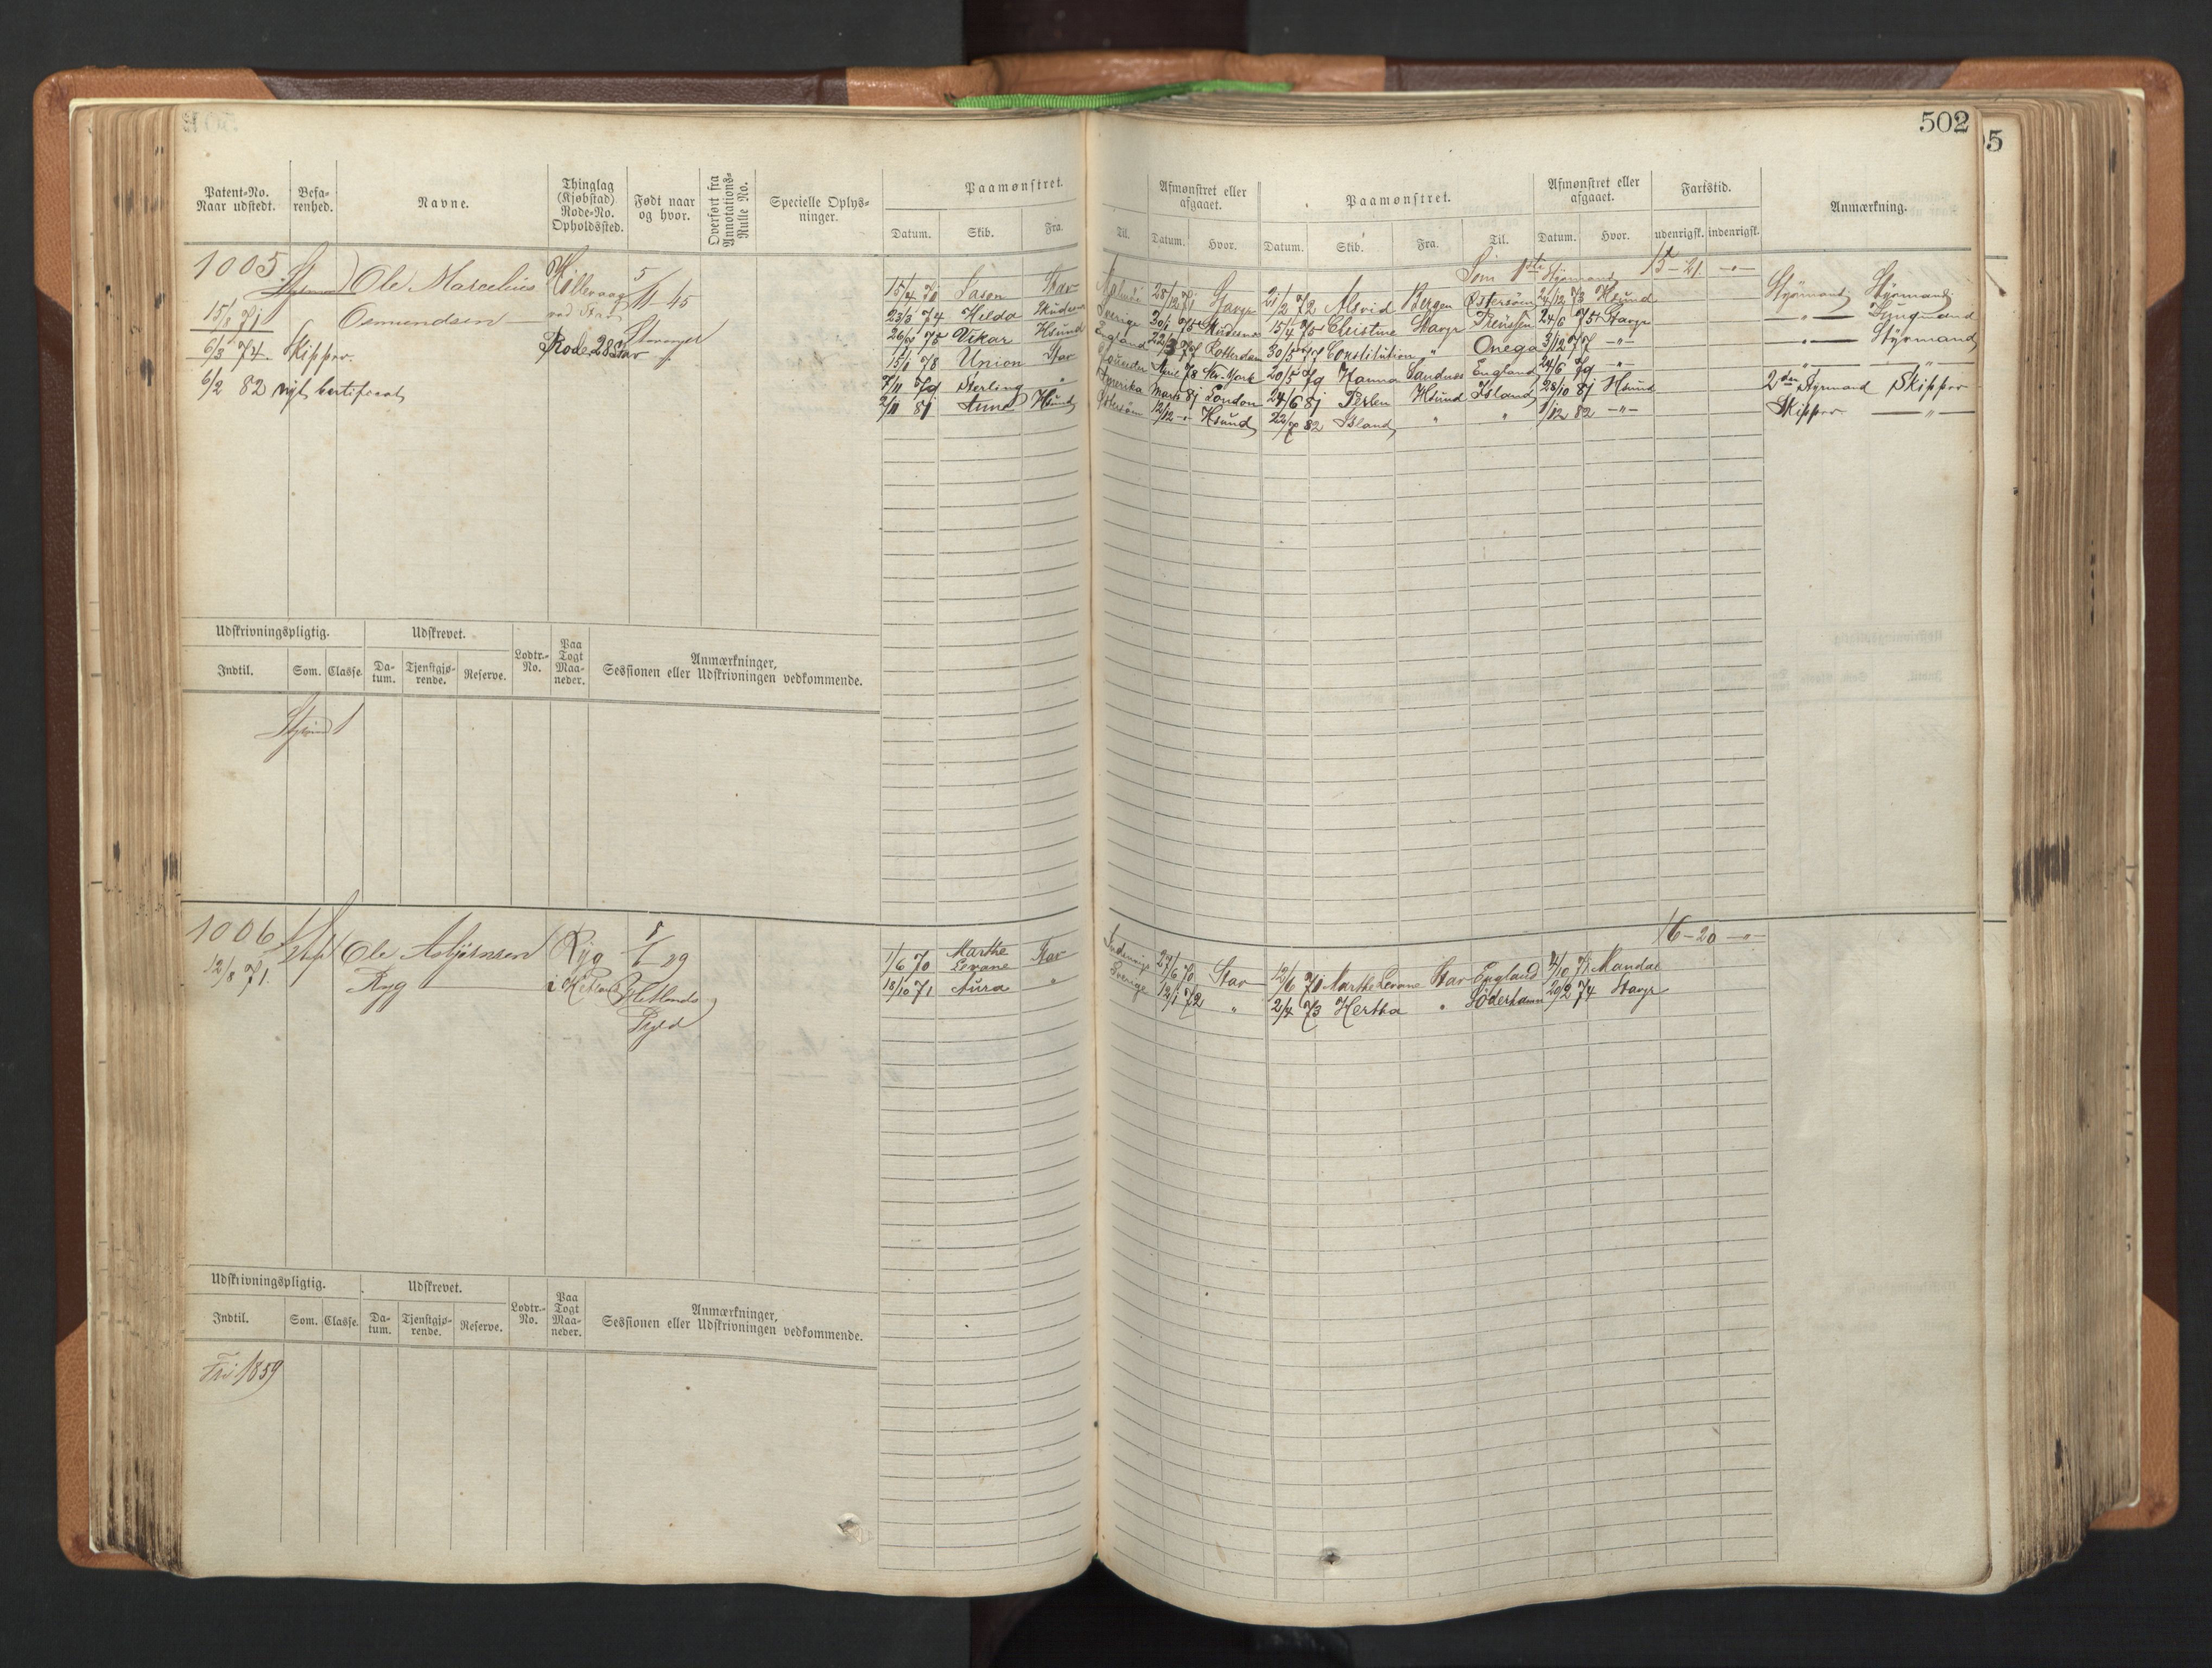 502
95
Patent-No. Naar udstedt.
Befa- renhed.
Navne.
Thinglag (Kjøbstad) Rode-No. Opholdssted.
Født naar og hvor.
Overført fra Annotations- Rulle No.
Specielle Oplys- ninger.
Paamønstret.
Datum. Skib. Fra.
Til.
Afmønstret eller afgaaet.
Datum. Hvor.
Paamønstret.
Datum. Skib. Fra. Til.
Afmønstret eller afgaaet.
Datum. Hvor.
Fartstid.
udenrigsk. indenrigsk.
Anmærkning.
1005
Ole Marcelius
Osmundsen
15/8 71
6/3 74. Skipper.
6/2 82 nyt Certificat
ved Stav
Rode 28 Stav
5/11 45
Stavanger
Som 1ste Styrmand 15-21 -"-
15/4 71 Sasen Stav
28/12 71 Stavgr 21/2 72 Alsvid Bergen Østersøen 24/12 73 Hsund Styrmand Styrmand
23/3 74 Hilda Skudesn Sverige 20/1 75 Skudesn 15/4 75 Christine Stavgr Preussen 24/6 75 Stavgr -"-
Vikar Hsund England 22/3 77 Rotterdam 30/5 77 Constitution " Onega 3/12 77 -"- -"- Styrmand
15/1 78 Union Stav April 78 New York 20/5 79 Hanna Sandnes England 24/6 79 -"- -"- -"-
7/11 79 Sterling " Amerika Marts 81 London 24/6 81 Perlen Hsund Island 28/10 81 Hsund 2den Styrmand Skipper
2/11 81 Anna Hsund Østersøen 12/12 " Hsund 82 Island " " 1/12 82 -"- Skipper -"-
Udskrivningspligtig. Udskrevet. Lodtr.- No. Paa Togt Maa- neder. Anmærkninger, Sessionen eller Udskrivningen vedkommende.
Indtil. Som. Classe. Da- tum. Tjenstgjø- rende. Reserve.
1
1006
12/8 71.
Ole Asbjørnsen
Ryg
Ryg
29
Hetlands
16-20 -"-
1/6 70 Marthe Levane Stav
27/6 70 Stav 12/6 71 Marthe Levane Stav England 2/10 71 Mandal
18/10 71 Aura " Sverige 12/1 72 " 2/4 73 Hertha " Söderhamn 20/2 74 Stavgr
Udskrivningspligtig. Udskrevet. Lodtr.- No. Paa Togt Maa- neder. Anmærkninger, Sessionen eller Udskrivningen vedkommende.
Indtil. Som. Classe. Da- tum. Tjenstgjø- rende. Reserve.
Fri 1859